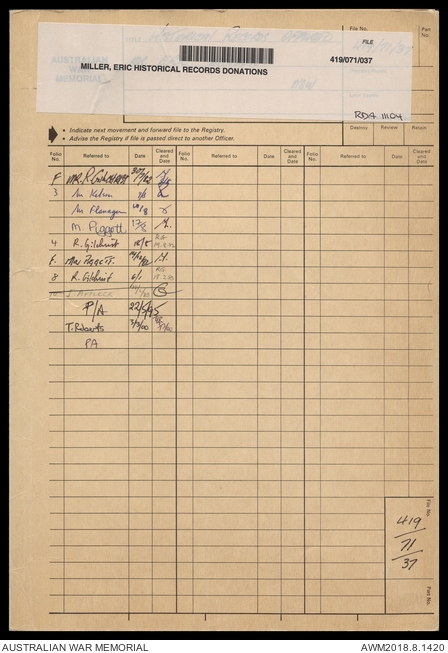 File No.
Part No.
TITLE
AUSTRALIAN
WAR
MEMORIAL
FILE
MILLER, ERIC HISTORICAL RECORDS DONATIONS
419/071/037
RDA 11104
Destroy Review Retain
• Indicate next movement and forward file to the Registry.
• Advise the Registry if file is passed direct to another Officer.
Folio No. Referred to Date Cleared and Date Folio No. Referred to Date Cleared and Date Folio No. Referred to Date Cleared and Date
F MR. R. Gilchrist
3
Mr Flanagan
M. Piggott 17/8
4 R. Gilchrist 18/8
F.
8 R. Gilchrist 6/1
P/A 22/5/95
T. Roberts 3/3/00
PA
File No.
419
71
37
Part No.
AUSTRALIAN WAR MEMORIAL
AWM2018.8.1420